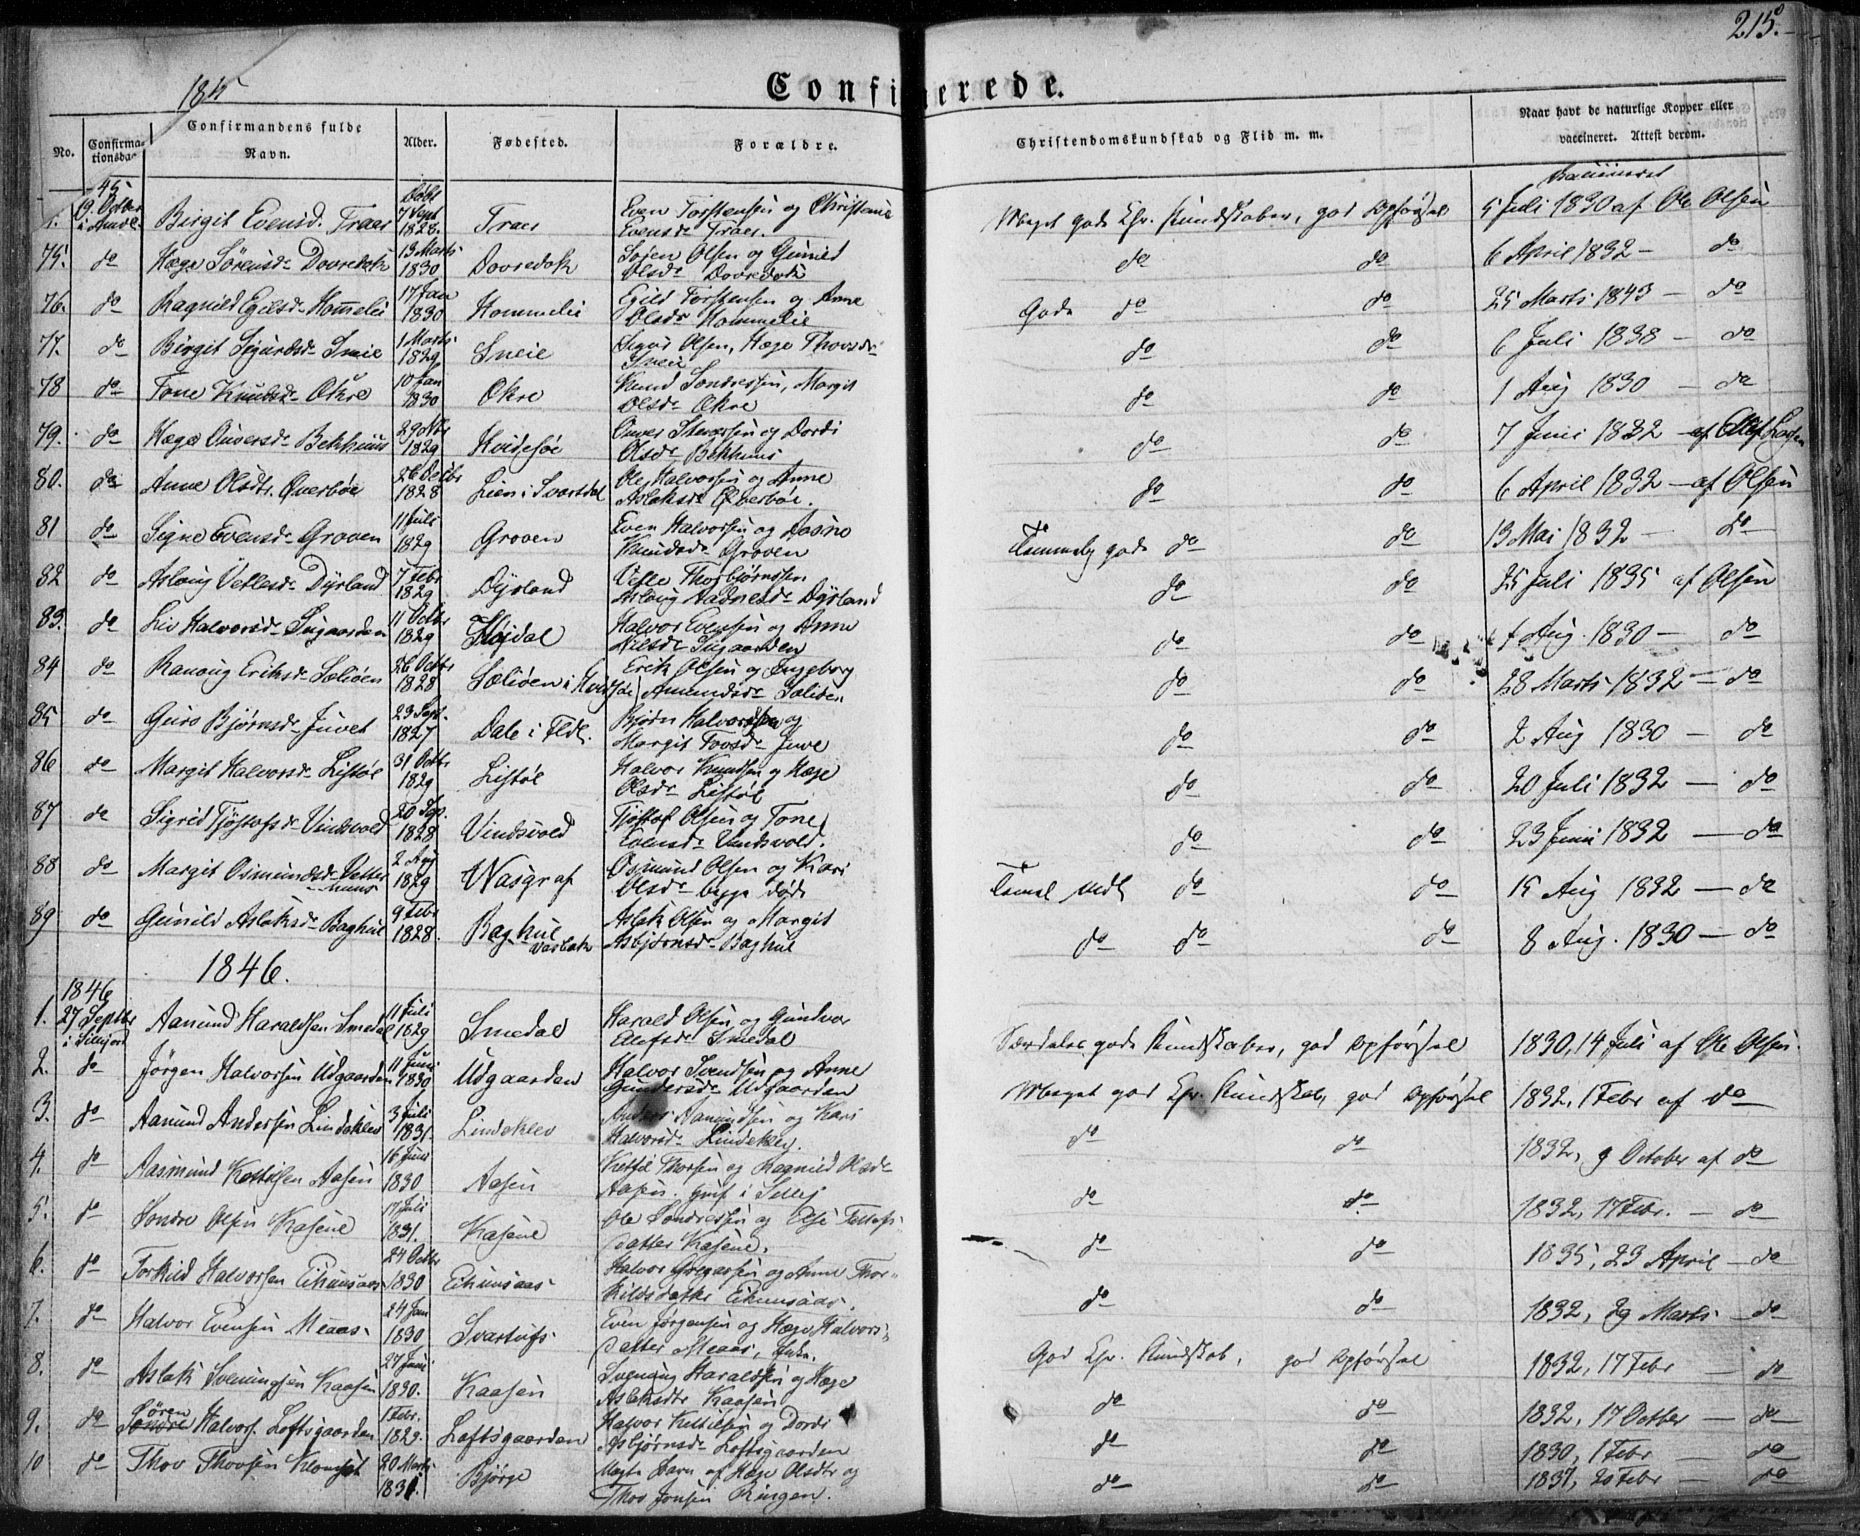 215.
1845
Confirmerede.
No.
Confirmationsdag
Confirmandens fulde Navn.
Alder.
Fødested.
Forældre.
Christendomskundskab og Flid m. m.
Naar havt de naturlige Kopper eller vaccineret. Attest derom.
45 Octbr Birgit Evensd. Traer Døbt 7 Sept 1828 Traer Even Torstensen og Christense Evensdr Traer. Meget gode Chr. Kundskaber, god Opførsel vaccineret 5 Juli 1830 af Ole Olsen
75. do Hæge Sörensdr Dovredok 13 Marts 1830 Dovredok Sören Olsen og Gunild Olsdr Dovredok do do 6 April 1832 — do
76. do Ragnild Egilsdr Hommelie 17 Jan 1830 Hommelie Egild Torstensen og Anne Olsdr Hommelie Gode do do 25 Marts 1843 — do
77. do Birgit Sigurdsdr Sneie 1 Marts 1829 Sneie Sigur Olsen, Hæge Thovsdr Sneie do do 6 Juli 1838 — do
78 do Tone Knudsdr Okre 10 Jan 1830 Okre Knud Sondresen, Margit Olsdr Okre do do 1 Aug 1830 — do
79. do Hæge Anversdr Bekhuus 1829 Hvidesøe og Dordi Olsdr Bekhuus do do 7 Juni 1832 — af Ellef Larsen
80. do Anne Olsdtr. Øverbøe 26 Octbr 1828 Lien i Svartdal Ole Halvorsen og Anne Aslaksdr Øverbøe. do do 6 April 1832 — af Olsen
81 do Signe Evensdr Groven 11 Juli 1829 Groven Even Halvorsen og Aasne Knudsdr Groven Temmelig gode do do 13 Mai 1832 — do
82 do Aslaug Vetlesdr Dyrland 7 Febr 1829 Dyrland Vetle Thorbjørnssen Aslaug Aadnesdr Dyrland do do 25 Juli 1835 af Olsen
83. do Liv Halvorsdr Sugaarden 11 Octbr 1829 Højdal Halvor Evensen og Anne Nielsdr Sugaarden do do Aug. 1830 — do
84 do Ranoug Eriksdr Sæliøen 26 Octbr 1828 Sæliøen i Hvidesøe Erik Olsen og Ingeborg Amundsdr Sæliøen do do 28 Marts 1832 — do
85 do Guro Bjørnsdr Juvet 23 Sept. 1827 Dale i Fldl. Bjørn Halvorsen og Margit Tovsdr Juve do do 2 Aug 1830 — do
86 do Margit Halvorsdr Listøl 31 Octbr 1829 Listøl Halvor Knudsen og Hæge Olsdr Listøl do do 20 Juli 1832 — do
87 do Sigrid Tjøstofsdr Vindsvold 20 Sep. 1828 Vindsvold Tjøstof Olsen og Tone Evensdr Vindsvold. do do 23 Juni 1832 — do
88 do Margit Osmundsdr 2 Aug 1829 Wasgraf Osmund Olsen og Kari Olsdr begge døde Temel midl do do 15 Aug 1832 — do
89 do Gunild Aslaksdr Baghul 9 Febr 1828. Baghul Aslak Olsen og Margit Asbjørnsdr Baghul do do do 8 Aug. 1830 — do
1846.
1846
1. 27 Septbr i Sillejord Aanund Haraldsen Smedal 11 Juli 1829 Smedal Harald Olsen og Gundvor Olafsdr Smedal Særdeles gode Kundskaber, god Opførsel 1830, 14 Juli af Ole Olsen.
2. do Jörgen Halvorsen Udgaarden 11 Juni 1830 Udgaarden Halvor Svendsen og Anne Gundersdr Udgaarden Meget god Chr. Kundskab, god Opførsel 1832, 1 Febr af do
3. do Aanund Andersen Lindeklev 3 Juli 1831. Lindeklev Anders Aanundsen og Kari Halvorsdr Lindeklev. do do 1832, 9 October af do
4. do Aasmund Kettilsen Aasen 16 Juni 1830 Aasen Kettil Thorsen og Ragnild Aasen. do do 1832, 17 Febr. — do
5. do Sondre Olsen Kasene 17 Juli 1831. Kasene Ole Sondresen og Datter Kasene. do do 1835, 23 April — do
6. do Torkild Halvorsen Eikunsaas 24 Octbr 1830 Eikunsaas Halvor Gregarsen og Anne Thorkildsdatter Eikunsaas. do do 1832, 29 Marts — do
7. do Halvor Evensen Meaas 24 Jan 1830 Svartufs Even Jørgensen og Hæge Halvorsdatter Meaas, God Chr. Kundskab, god Opførsel 1832, 17 Febr do
8. do Aslak Sveningsen Kaasen 27 Juni 1830. Kaasen Svening Haraldsen og Hæge Aslaksdtr Kaasen do do 1832, 17 Octber — do
9. do Sören Halvors. Loftsgaarden 1 Febr. 1829. Loftsgaarden Halvor Kittilsen og Dordi Asbjørnsdr Loftsgaarden do do 1830, 1 Febr — do
10 do Thov Thovsen Klomset 20 Marts 1831. Bjørge Uægte Barn af Hæge Olsdtr og Thov Jonsen Ringen. do do 1837, 20 Febr — do